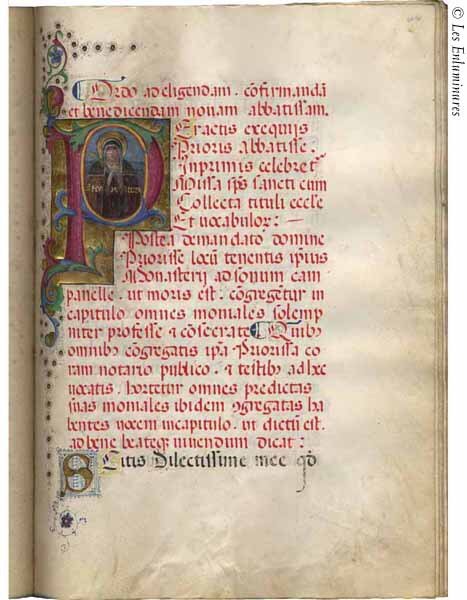 Ordo ad eligendam. cōfirmandā
et benedicendam nouam abbatissam.
Peractis exequijs
prioris abbatisse.
Inprimis celebret᷑
missa sp̄s sancti cum
Collecta tituli eccl̄e
Et uocabulor: —
Postea demandato domine
Priorisse locū tenentis ipīus
Monasterij ad sonum cam
panelle. ut moris est. cōgregēt᷑ in
capitulo omnes moniales solemp
niter professe & cōsecrate Quibꝫ
omnibꝫ cōgregatis ip̄a Priorissa co
ram notario publico. & testibꝫ ad hec
uocatis. hortetur omnes predictas
suas moniales ibidem ꝯgregatas ha
bentes uocem in capitulo. ut dictū est.
ad bene beateqꝫ uiuendum dicat:
Scitis Dilectissime mee qd̄
© Les Enluminures